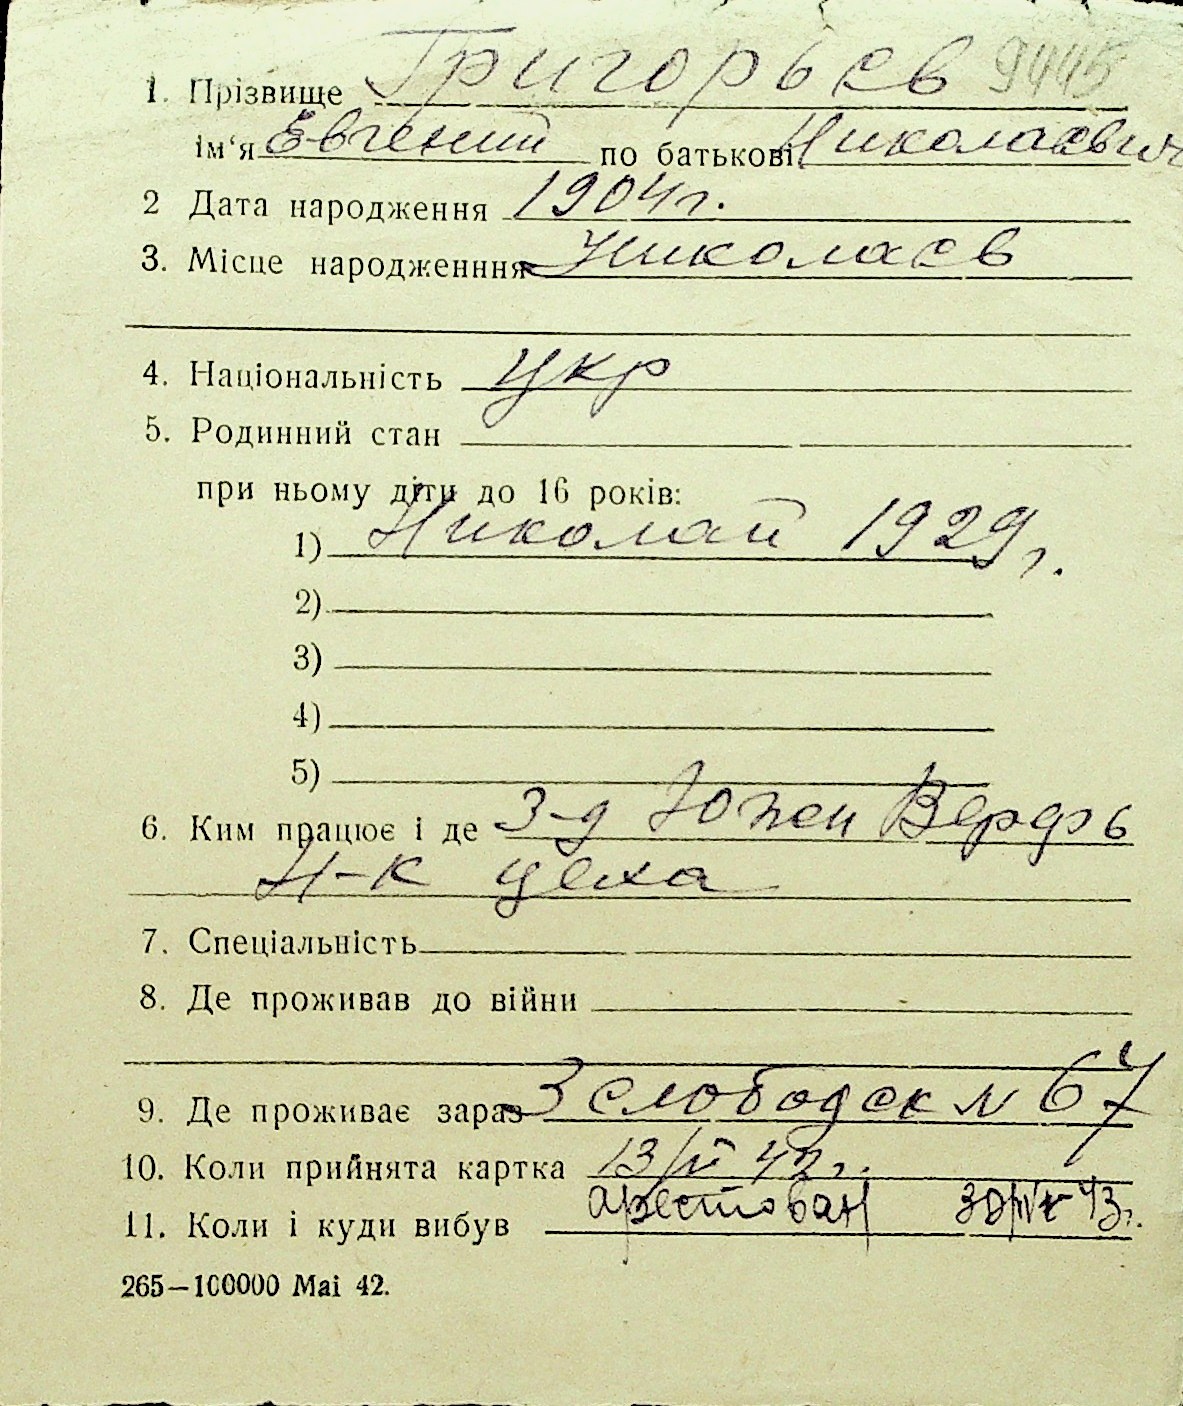 1. Прізвище Григорьев 9445
ім‘я Евгений по батькові Николаевич
2 Дата народження 1904 г.
3. Місце народженння Николаев
4. Національність Укр
5. Родинний стан
при ньому діти до 16 років:
1) Николай 1929 г.
2)
3)
4)
5)
6. Ким працює і де З-д Южн Верфь
Н-к цеха
7. Спеціальність
8. Де проживав до війни
9. Де проживає зараз 3 слободск № 67
10. Коли прийнята картка 42 г.
11. Коли і куди вибув арестован 43 г.
265—100000 Mai 42.